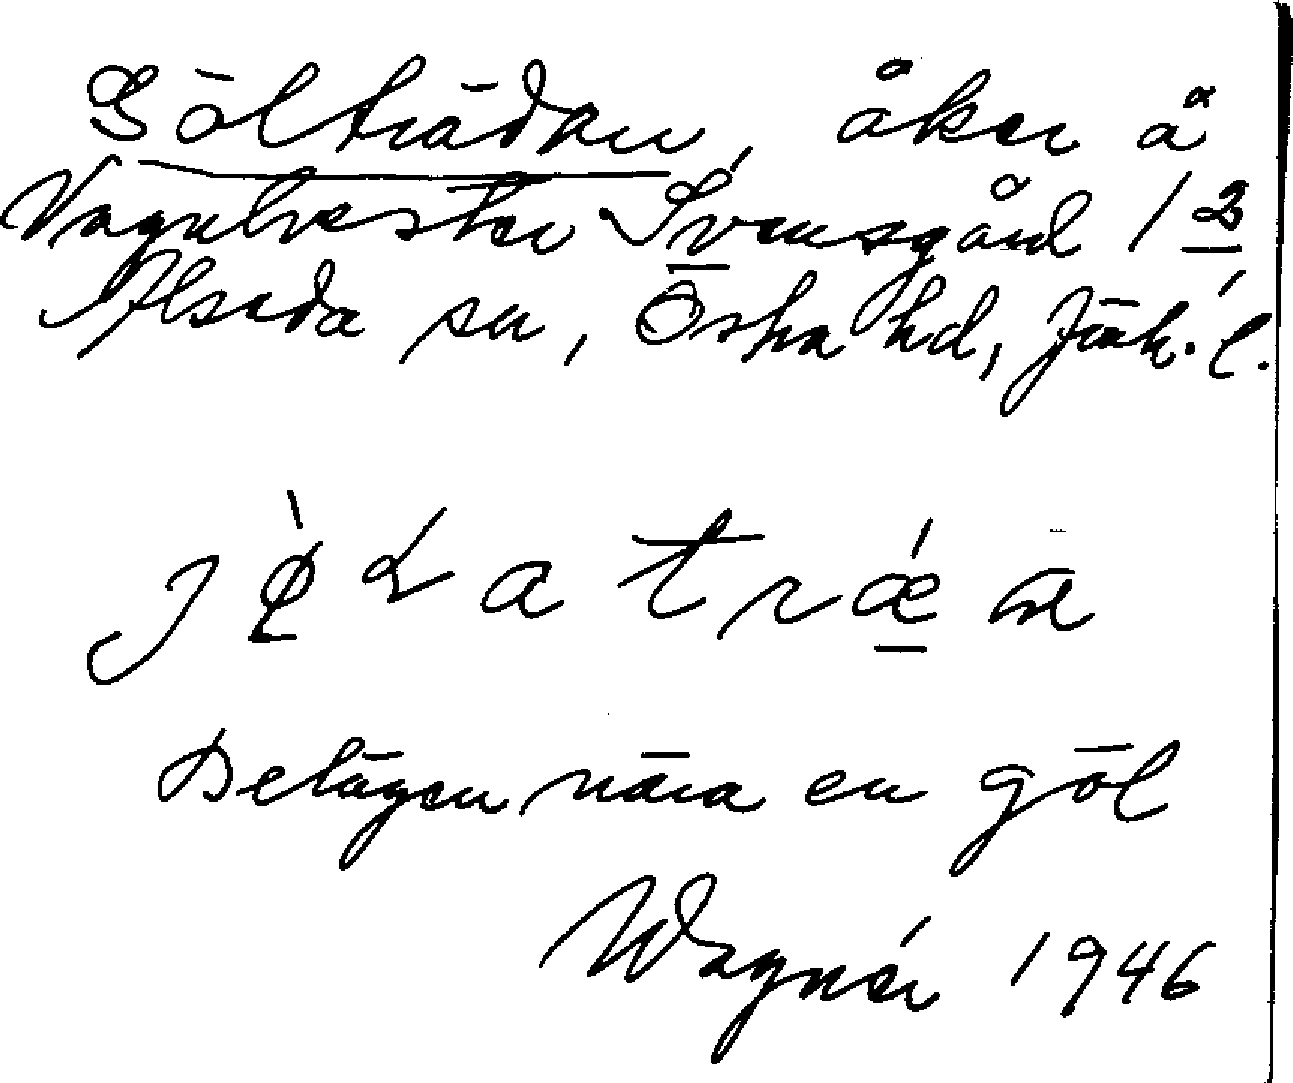 Gölträdan, åker å
Vagnhester Svensgård 1 2
Alseda sn, Östra hd, Jönk. l.
Belägen nära en göl
Wagnér 1946